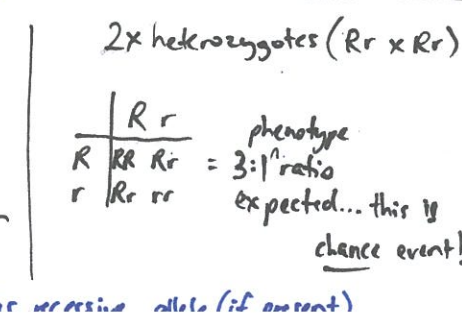 2x heterozygotes (Rr x Rr)
R r
R RR Rr = 3:1 phenotype ratio
r Rr rr expected... this is
chance event!
recessive allele (if present)